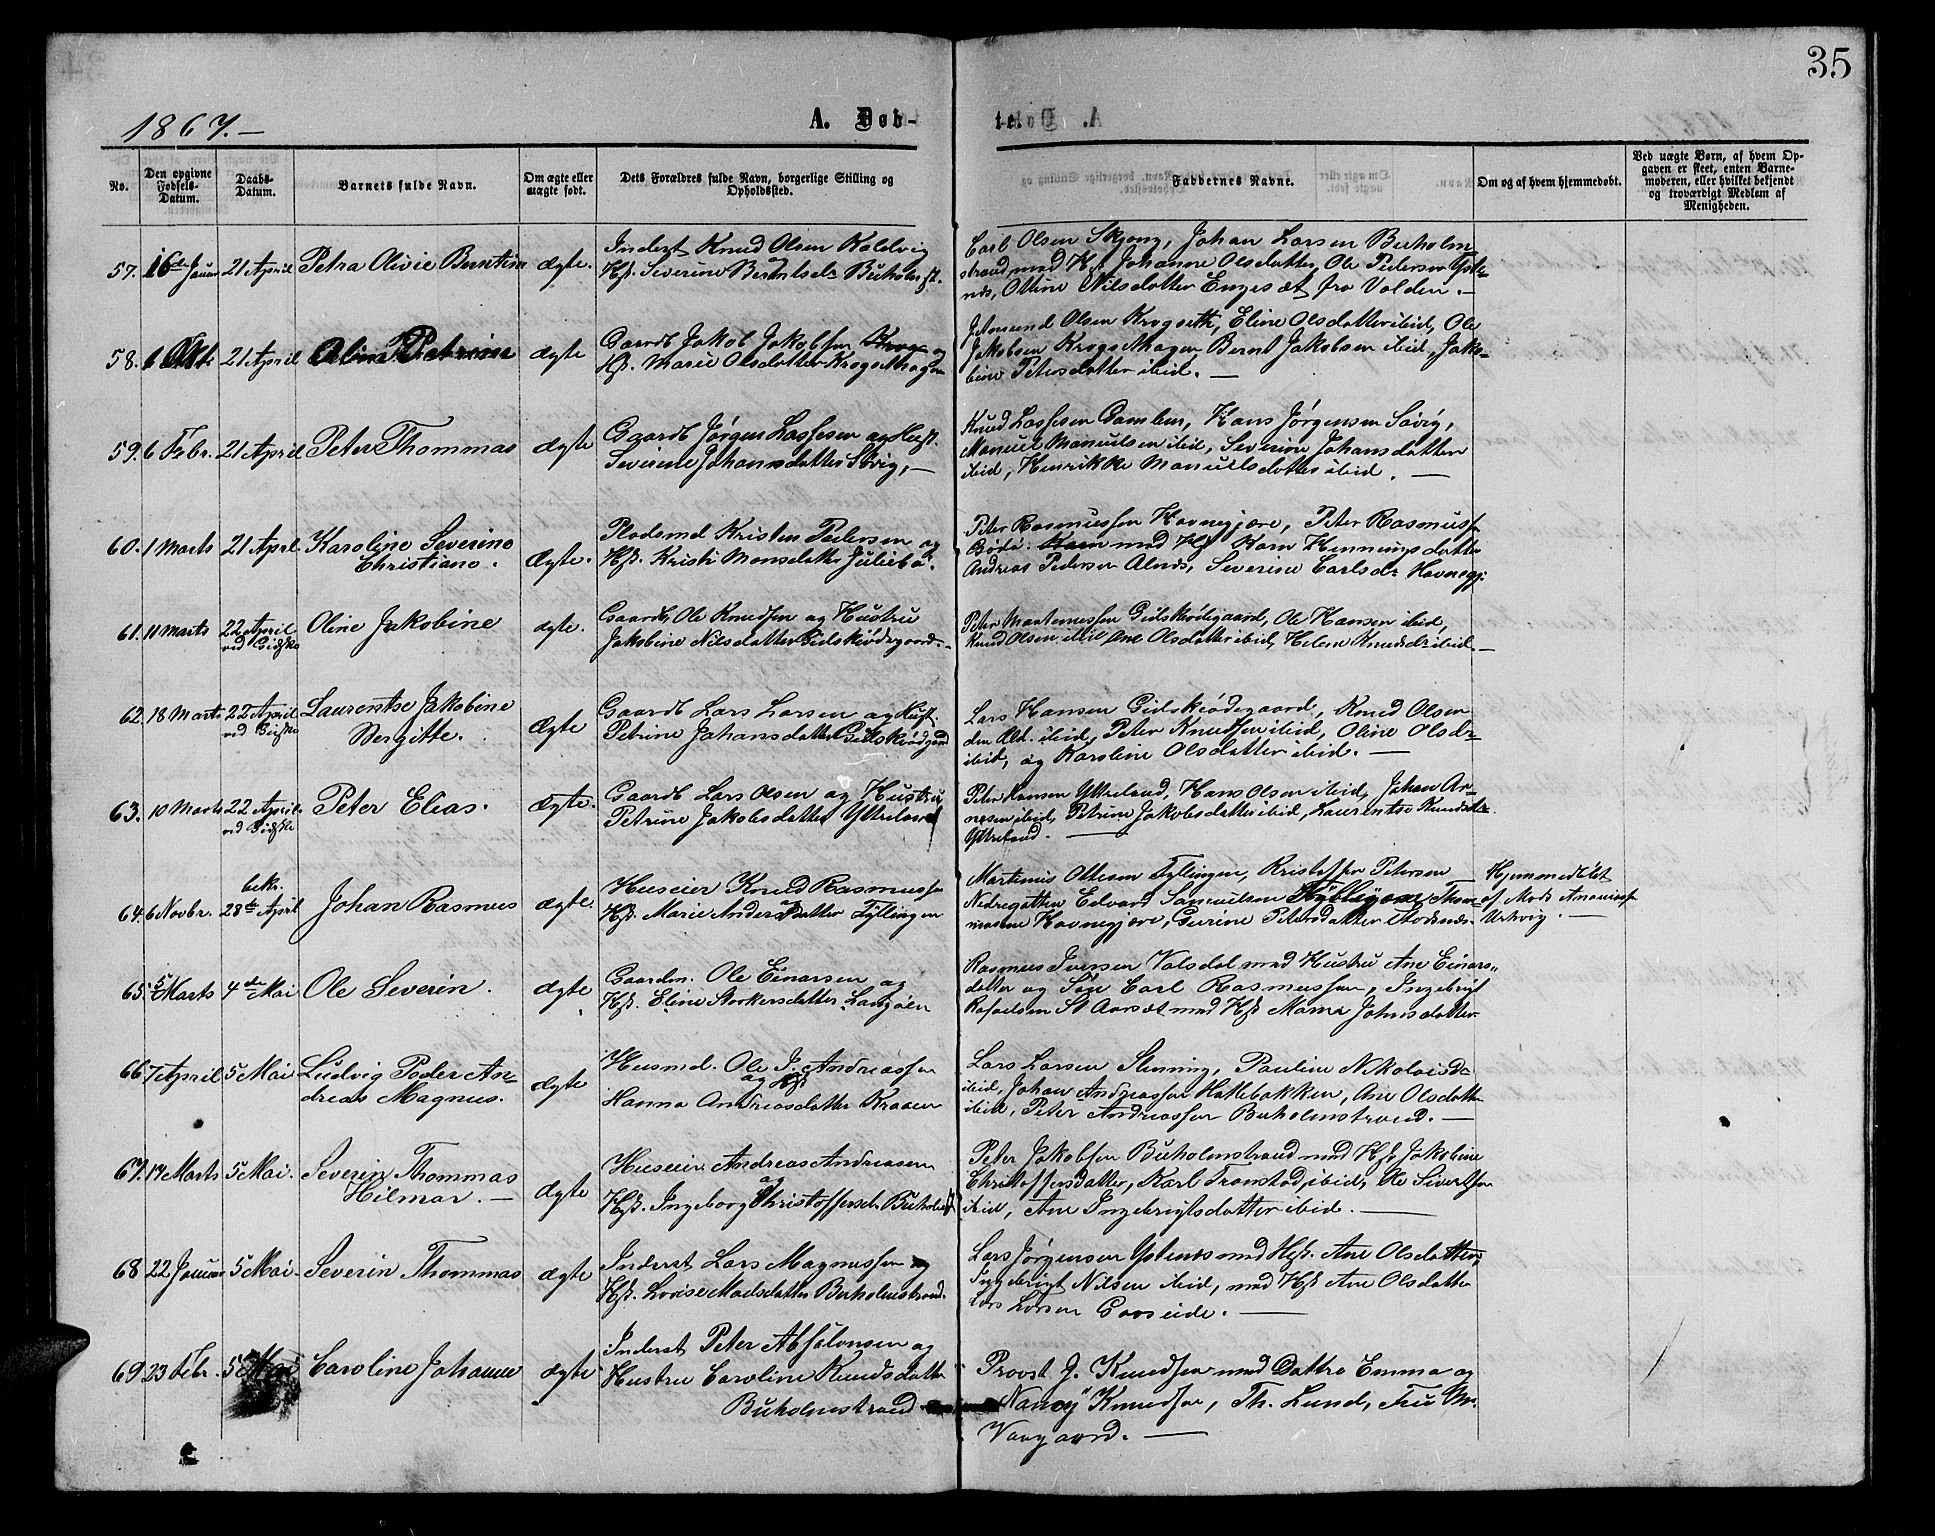 35
1867.—
A. Døb-
te.
No.
Den opgivne Fødsels-Datum.
Daabs-Datum.
Barnets fulde Navn.
Om ægte eller uægte født.
Dets Forældres fulde Navn, borgerlige Stilling og Opholdssted.
Faddernes Navne.
Om og af hvem hjemmedøbt.
Ved uægte Børn, af hvem Opgaven er skeet, enten Barnemoderen, eller hvilket bekjendt og troværdigt Medlem af Menigheden.
57. 16de Januar 21 April Petra Olivie Berntine ægte. Inderst Knud Olsen Kaldvig
og Hst. Severine Berntsdr Buholmst.
Carl Olsen Skjong, Johan Larsen Buholm-
strand med Hst Johanne Olsdatter, Ole Pedersen Yste-
nes, Oline Nilsdatter Engesæt fra Volden.—
58. 6 Okt 21 April Oline Petrine ægte Gaardb Jakob Jakobsen og
Hst. Marie Olsdatter Krogsethagen
Amund Olsen Krogseth, Eline Olsdatter ibid, Ole
Jakobsen Krogsethagen Bernt Jakobsen ibid, Jako-
bine Petersdatter ibid.—
59. 6 Febr. 21 April Peter Thommas ægte Gaardb Jørgen Lassesen og Hust.
Severine Johannsdatter Søvig,—
Knud Lassesen Gamlem, Hans Jørgensen Søvig,
Manuel Manuelsen ibid, Severine Johansdatter
ibid, Henrikke Manuelsdatter ibid.—
60. 1 Marts 21 April. Karoline Severine
Christiane. ægte. Pladsmd Kristen Pedersen og
Hst. Kristi Monsdatter Juliebø.
Peter Rasmussen Havnegjære, Peter Rasmuss.
Bødø. med Hst Karn Henningsdatter
Andreas Pedersen Alnes, Severine Carlsdr Havnegj.
61. 11 Marts 22 April
ved Gidske Oline Jakobine ægte. Gaardb. Ole Knudsen og Hustru
Jakobine Nilsdatter Gidskeødegaard.-
Peter Martenussen Gidskeødegaard, Ole Hansen ibid,
Knud Olsen ibid Ane Olsdatter ibid, Helene Knudsdr ibid.—
62. 18 Marts 22 April
ved Gidske Laurentse Jakobine
Bergitte. Ægte Gaardb Lars Larsen og Hust.
Petrine Johansdatter Gidskeødgaard
Lars Hansen Gidskeødegaard, Knud Olsen
den Æld. ibid, Peter Knudsen ibid, Oline Olsdr
ibid, og Karoline Olsdatter ibid.—
63. 10 Marts 22 April
ved Gidske Peter Elias. Ægte. Gaardb Lars Olsen og Hustru
Petrine Jakobsdatter Ytreland
Peter Hansen Ytreland, Hans Olsen ibid, Johan Ar-
nesen ibid, Petrine Jakobsdatter ibid, Laurentse Knudsdtr.
Ytreland.—
64. 6 Novbr. bekr.
28de April Johan Rasmus ægte. Huseier Knud Rasmussen
og Hst. Marie Andersdatter Fyllingen
Martinus Ottesen Fyllingen, Kristoffer Petersen
Nedregotten Edvard Samuelsen Thom-
masen Havnegjære, Gurine Petersdatter
Hjemmedøbt
af Mads Ananiass.
Urkvig.—
65. 5 Marts 4de Mai Ole Severin. ægte Gaardm. Ole Einarsen og
Hst. Eline Storkersdatter Langøen
Rasmus Iversen Valsdal med Hustru Ane Einars-
datter og Søn Carl Rasmussen, Ingebrigt
Rafaelsen St Aarsæt med Hst Marne Johnsdatter
66. 7 April 5 Mai Ludvig Peder An-
dreas Magnus. ægte Husmd. Ole J. Andreassen
og Hst
Hanna Andreasdatter Kraaen
Lars Larsen Slinning, Pauline Nikolaisdr
ibid, Johan Andreassen Hatlebakken, Ane Olsdatter
ibid, Peter Andreassen Buholmstrand.—
67. 17 Marts 5 Mai. Severin Thommas
Hilmar.— ægte Huseier Andreas Andreasen
og
Hst. Ingeborg Christoffersdr Buholmst
Peter Jakobsen Buholmstrand med Hst Jakobine
Christoffersdatter, Karl Tronstad ibid, Ole Sivertsen
ibid, Ane Ingebrigtsdatter ibid.—
68 22 Januar 5 Mai. Severin Thommas ægte Inderst Lars Magnussen og
Hst. Lovise Madsdatter Buholmstrand.
Lars Jørgensen Ystenes med Hst. Ane Olsdatter,
Ingebrigt Nilsen ibid, med Hst Ane Olsdatter
Lars Larsen Gaaseide.—
69. 23 Febr. 5 Mai Caroline Johanne ægte Inderst Peter Absalonsen og
Hustru Caroline Knudsdatter
Buholmstrand
Provst J. Knudsen med Dattre Emma og
Nancy Knudsen, Th. Lund, Fru M.
Vaagaard.—